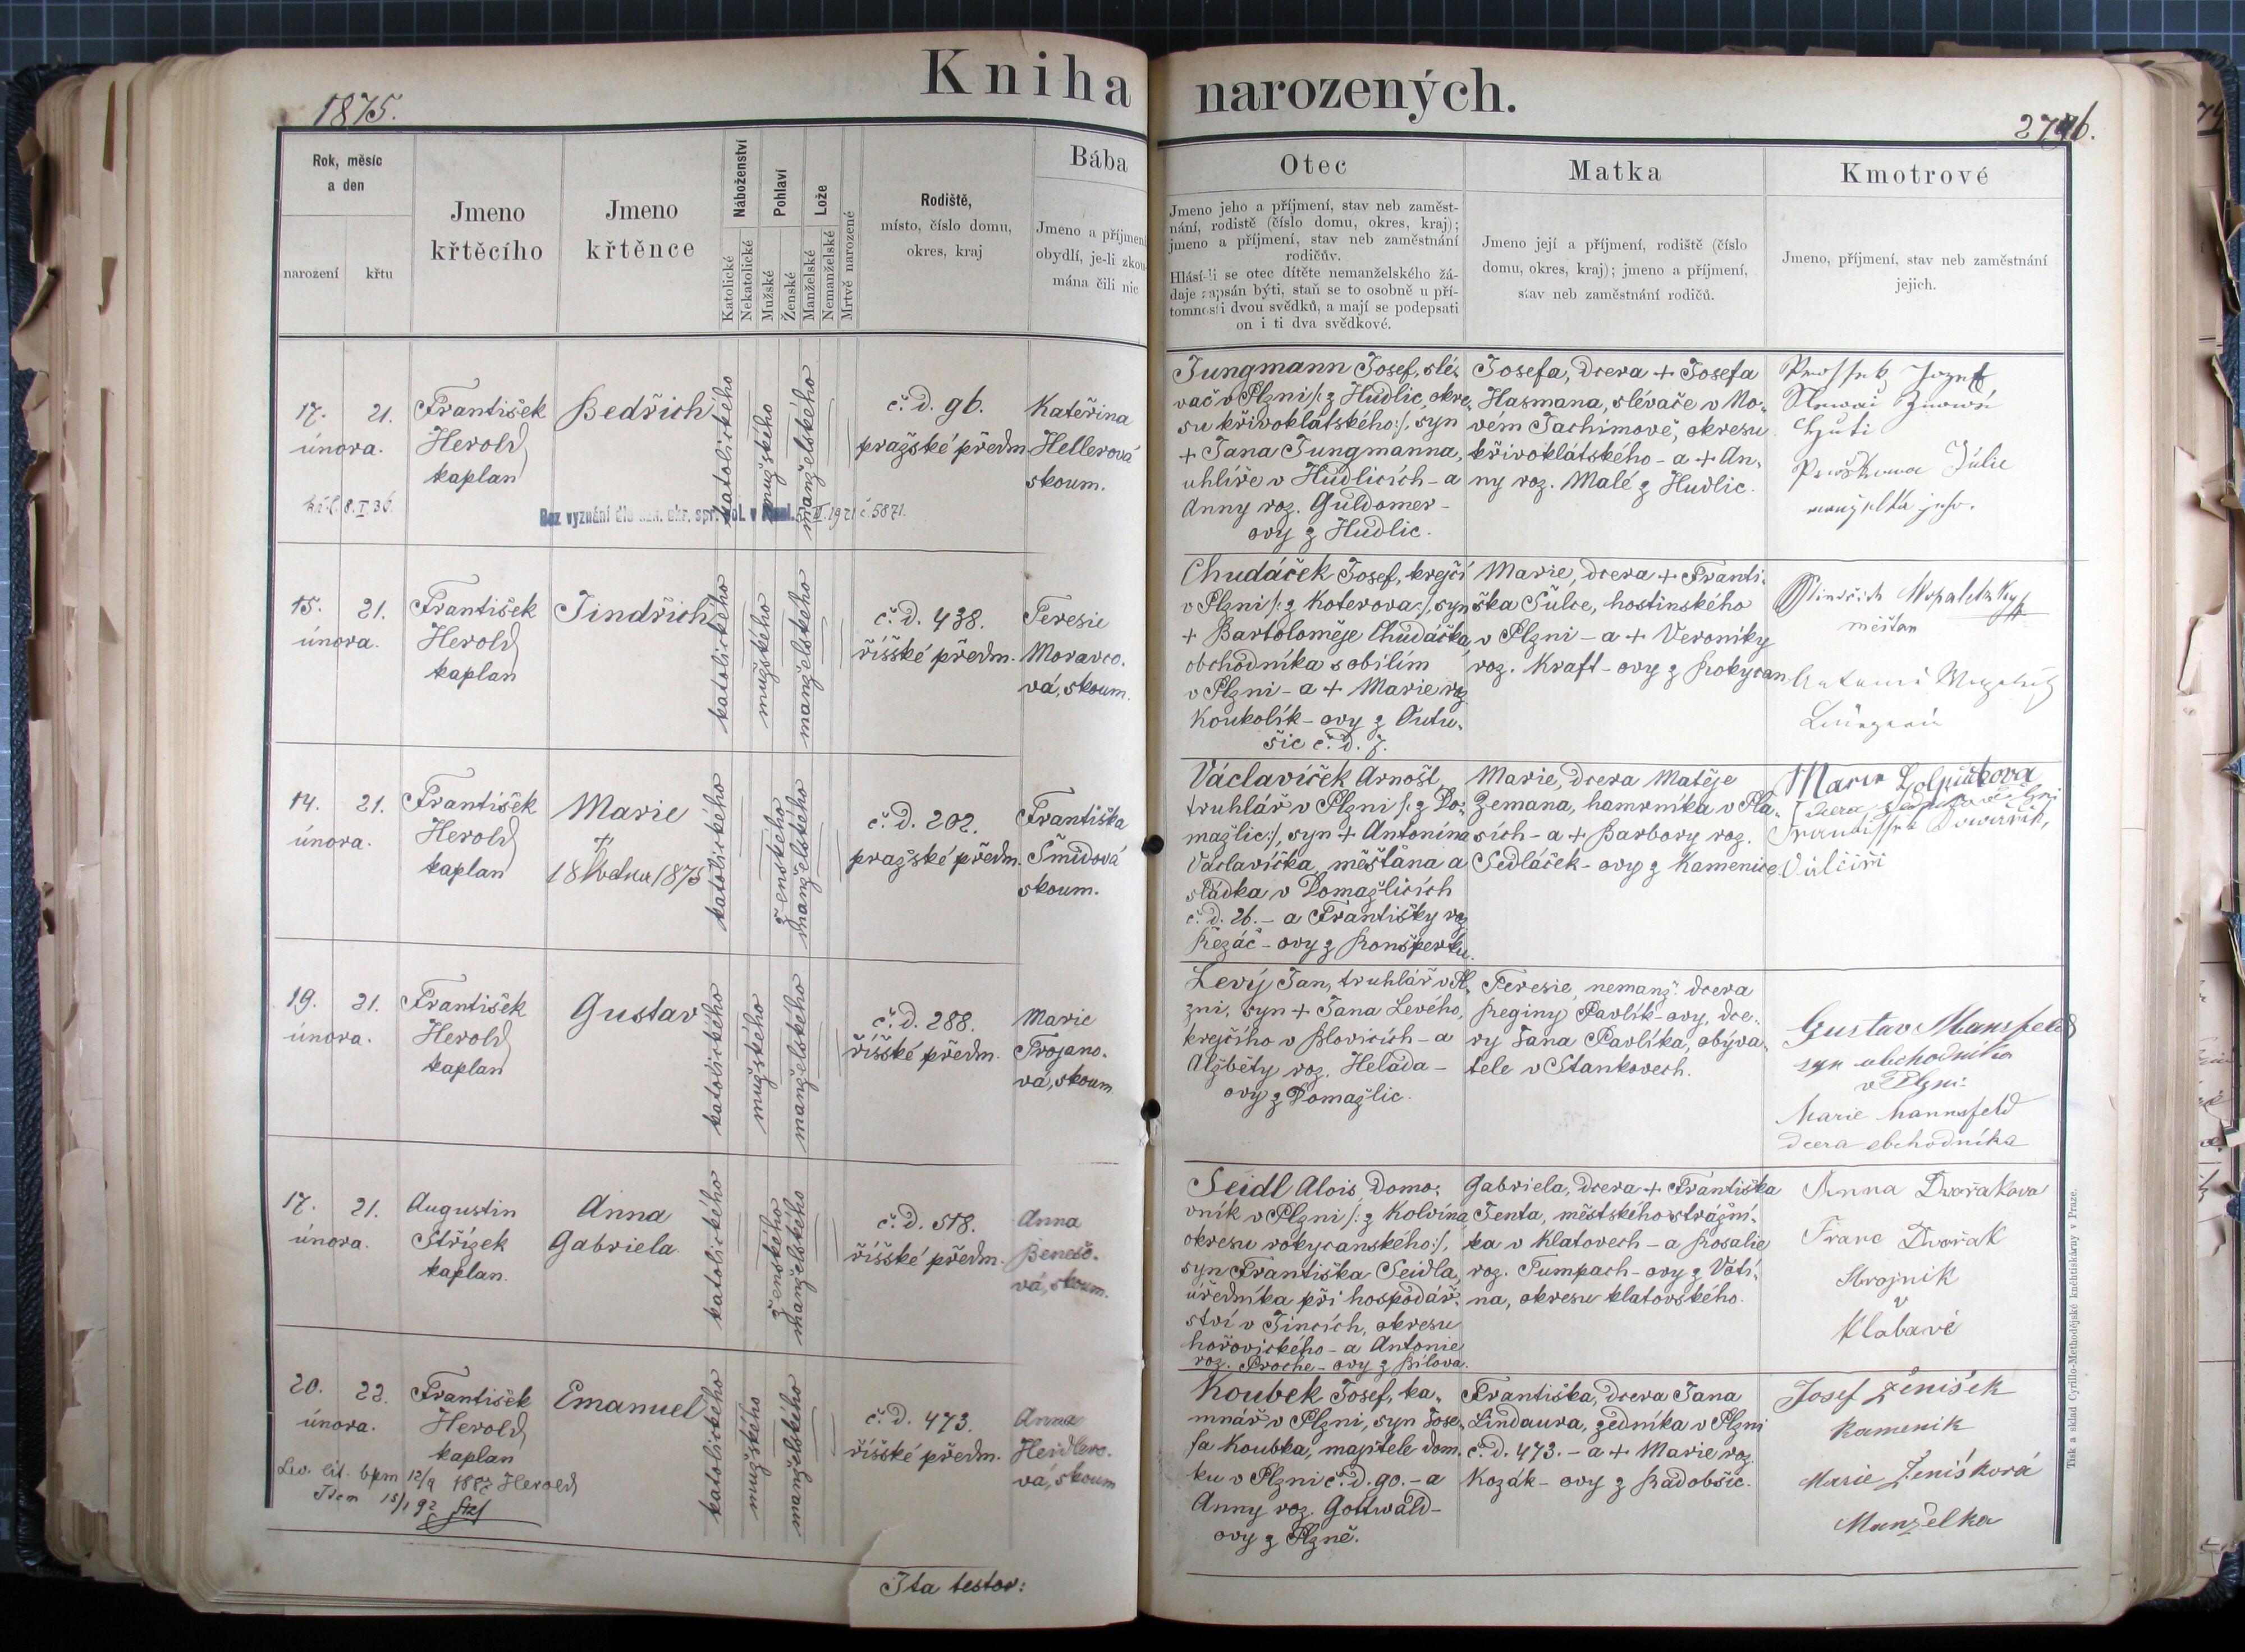 Kniha narozených.
1875.
2746.
Rok, měsíc
a den
narození
křtu
Jmeno
křtěcího
Jmeno
křtěnce
Náboženství
Katolické
Nekatolické
Pohlaví
Mužské
Ženské
Lože
Manželské
Nemanželské
Mrtvě narozené
Rodiště,
místo, číslo domu,
okres, kraj
Bába
Jmeno a příjmení
obydlí, je-li zkou-
mána čili nic
Otec
Jmeno jeho a příjmení, stav neb zaměst-
nání, rodistě (číslo domu, okres, kraj);
jmeno a příjmení, stav neb zaměstnání
rodičův.
Hlásí-li se otec dítěte nemanželského žá-
daje zapsán býti, staň se to osobně u pří-
tomnosti dvou svědků, a mají se podepsati
on i ti dva svědkové.
Matka
Jmeno její a příjmení, rodiště (číslo
domu, okres, kraj); jmeno a příjmení,
stav neb zaměstnání rodičů.
Kmotrové
Jmeno, příjmení, stav neb zaměstnání
jejich.
17. 21.
února.
František
Herold
kaplan
Bedřich
katolického
mužského
manželského
č. d. 96.
pražské předm.
Kateřina
Hellerová
skoum.
Bez vyznání dle 1921 č. 5871.
Jungmann Josef, slé-
vač v Plzni /: z Hudlic, okre-
su křivoklátského :/, syn
+ Jana Jungmanna,
uhlíře v Hudlicích - a
Anny roz. Guldomer-
ovy z Hudlic.
Josefa, dcera + Josefa
Hasmana, slévače v No-
vém Jachimově, okresu
křivoklátského - a + An-
ny roz. Malé z Hudlic.
Julie
15. 21.
února.
František
Herold
kaplan
Jindřich
katolického
mužského
manželského
č. d. 438.
říšské předm.
Teresie
Moravco-
vá, skoum.
Chudáček Josef, krejčí
v Plzni /: z Koterova :/, syn
+ Bartoloměje Chudáčka,
obchodníka s obilím
v Plzni - a + Marie roz.
Koukolík - ovy z Outu-
šic č. d. 7.
Marie, dcera + Franti-
ška Šulce, hostinského
v Plzni - a + Veroniky
roz. Kraft - ovy z Rokycan
měšťan
14. 21.
února.
František
Herold
kaplan
Marie
+
18 1875
katolického
ženského
manželského
č. d. 202.
pražské předm.
Františka
Šmídová
skoum.
Václavíček Arnošt,
truhlář v Plzni /: z Do-
mažlic :/, syn + Antonína
Václavíčka, měšťana a
sládka v Domažlicích
č. d. 26. - a Františky roz.
Řezáč - ovy z Ronšperku.
Marie, dcera Matěje
Zemana, hamrníka v Pla-
sích - a + Barbory roz.
Sedláček - ovy z Kamenice.
Marie
19. 21.
února.
František
Herold
kaplan
Gustav
katolického
mužského
manželského
č. d. 288.
říšské předm.
Marie
Trojano-
vá, skoum.
Levý Jan, truhlář v Pl-
zni, syn + Jana Levého,
krejčího v Blovicích - a
Alžběty roz. Helada -
ovy z Domažlic.
Teresie, nemanž. dcera
Reginy Pavlík - ovy, dce-
ry Jana Pavlíka, obýva-
tele v Stankovech.
Gustav Mansfeld
syn obchodníka
v Plzni
Marie Mannsfeld
dcera obchodníka
17. 21.
února.
Augustin
Střízek
kaplan.
Anna
Gabriela
katolického
ženského
manželského
č. d. 518.
říšské předm.
Anna
Benešo-
vá, skoum.
Seidl Alois, domo-
vník v Plzni /: z Kolvína
okresu rokycanského :/,
syn Františka Seidla,
úředníka při hospodář-
ství v Jincích, okresu
hořovického - a Antonie
roz. Proche - ovy z Bílova.
Gabriela, dcera + Františka
Jenta, městského strážní-
ka v Klatovech - a Rosalie
roz. Tumpach - ovy z Votí-
na, okresu klatovského.
Anna Dvořakova
Franc Dvořak
Strojnik
v
Klabavě
20. 22.
února.
František
Herold
kaplan
Emanuel
katolického
mužského
manželského
č. d. 473.
říšské předm.
Anna
Heidlero-
vá, skoum
Lev. lit. bpm 12/9 1887 Herold
Idem 15/1 92
Koubek Josef, ka-
mnář v Plzni, syn Jose-
fa Koubka, majitele dom-
ku v Plzni č. d. 90. - a
Anny roz. Gottwald -
ovy z Plzně.
Františka, dcera Jana
Lindaura, zedníka v Plzni
č. d. 473. - a + Marie roz.
Kozák - ovy z Radobšic.
Josef Ženíšek
Kameník
Marie Ženíšková
Manželka
Ita testor:
Tisk a sklad Cyrillo-Methodějské knihtiskárny v Praze.